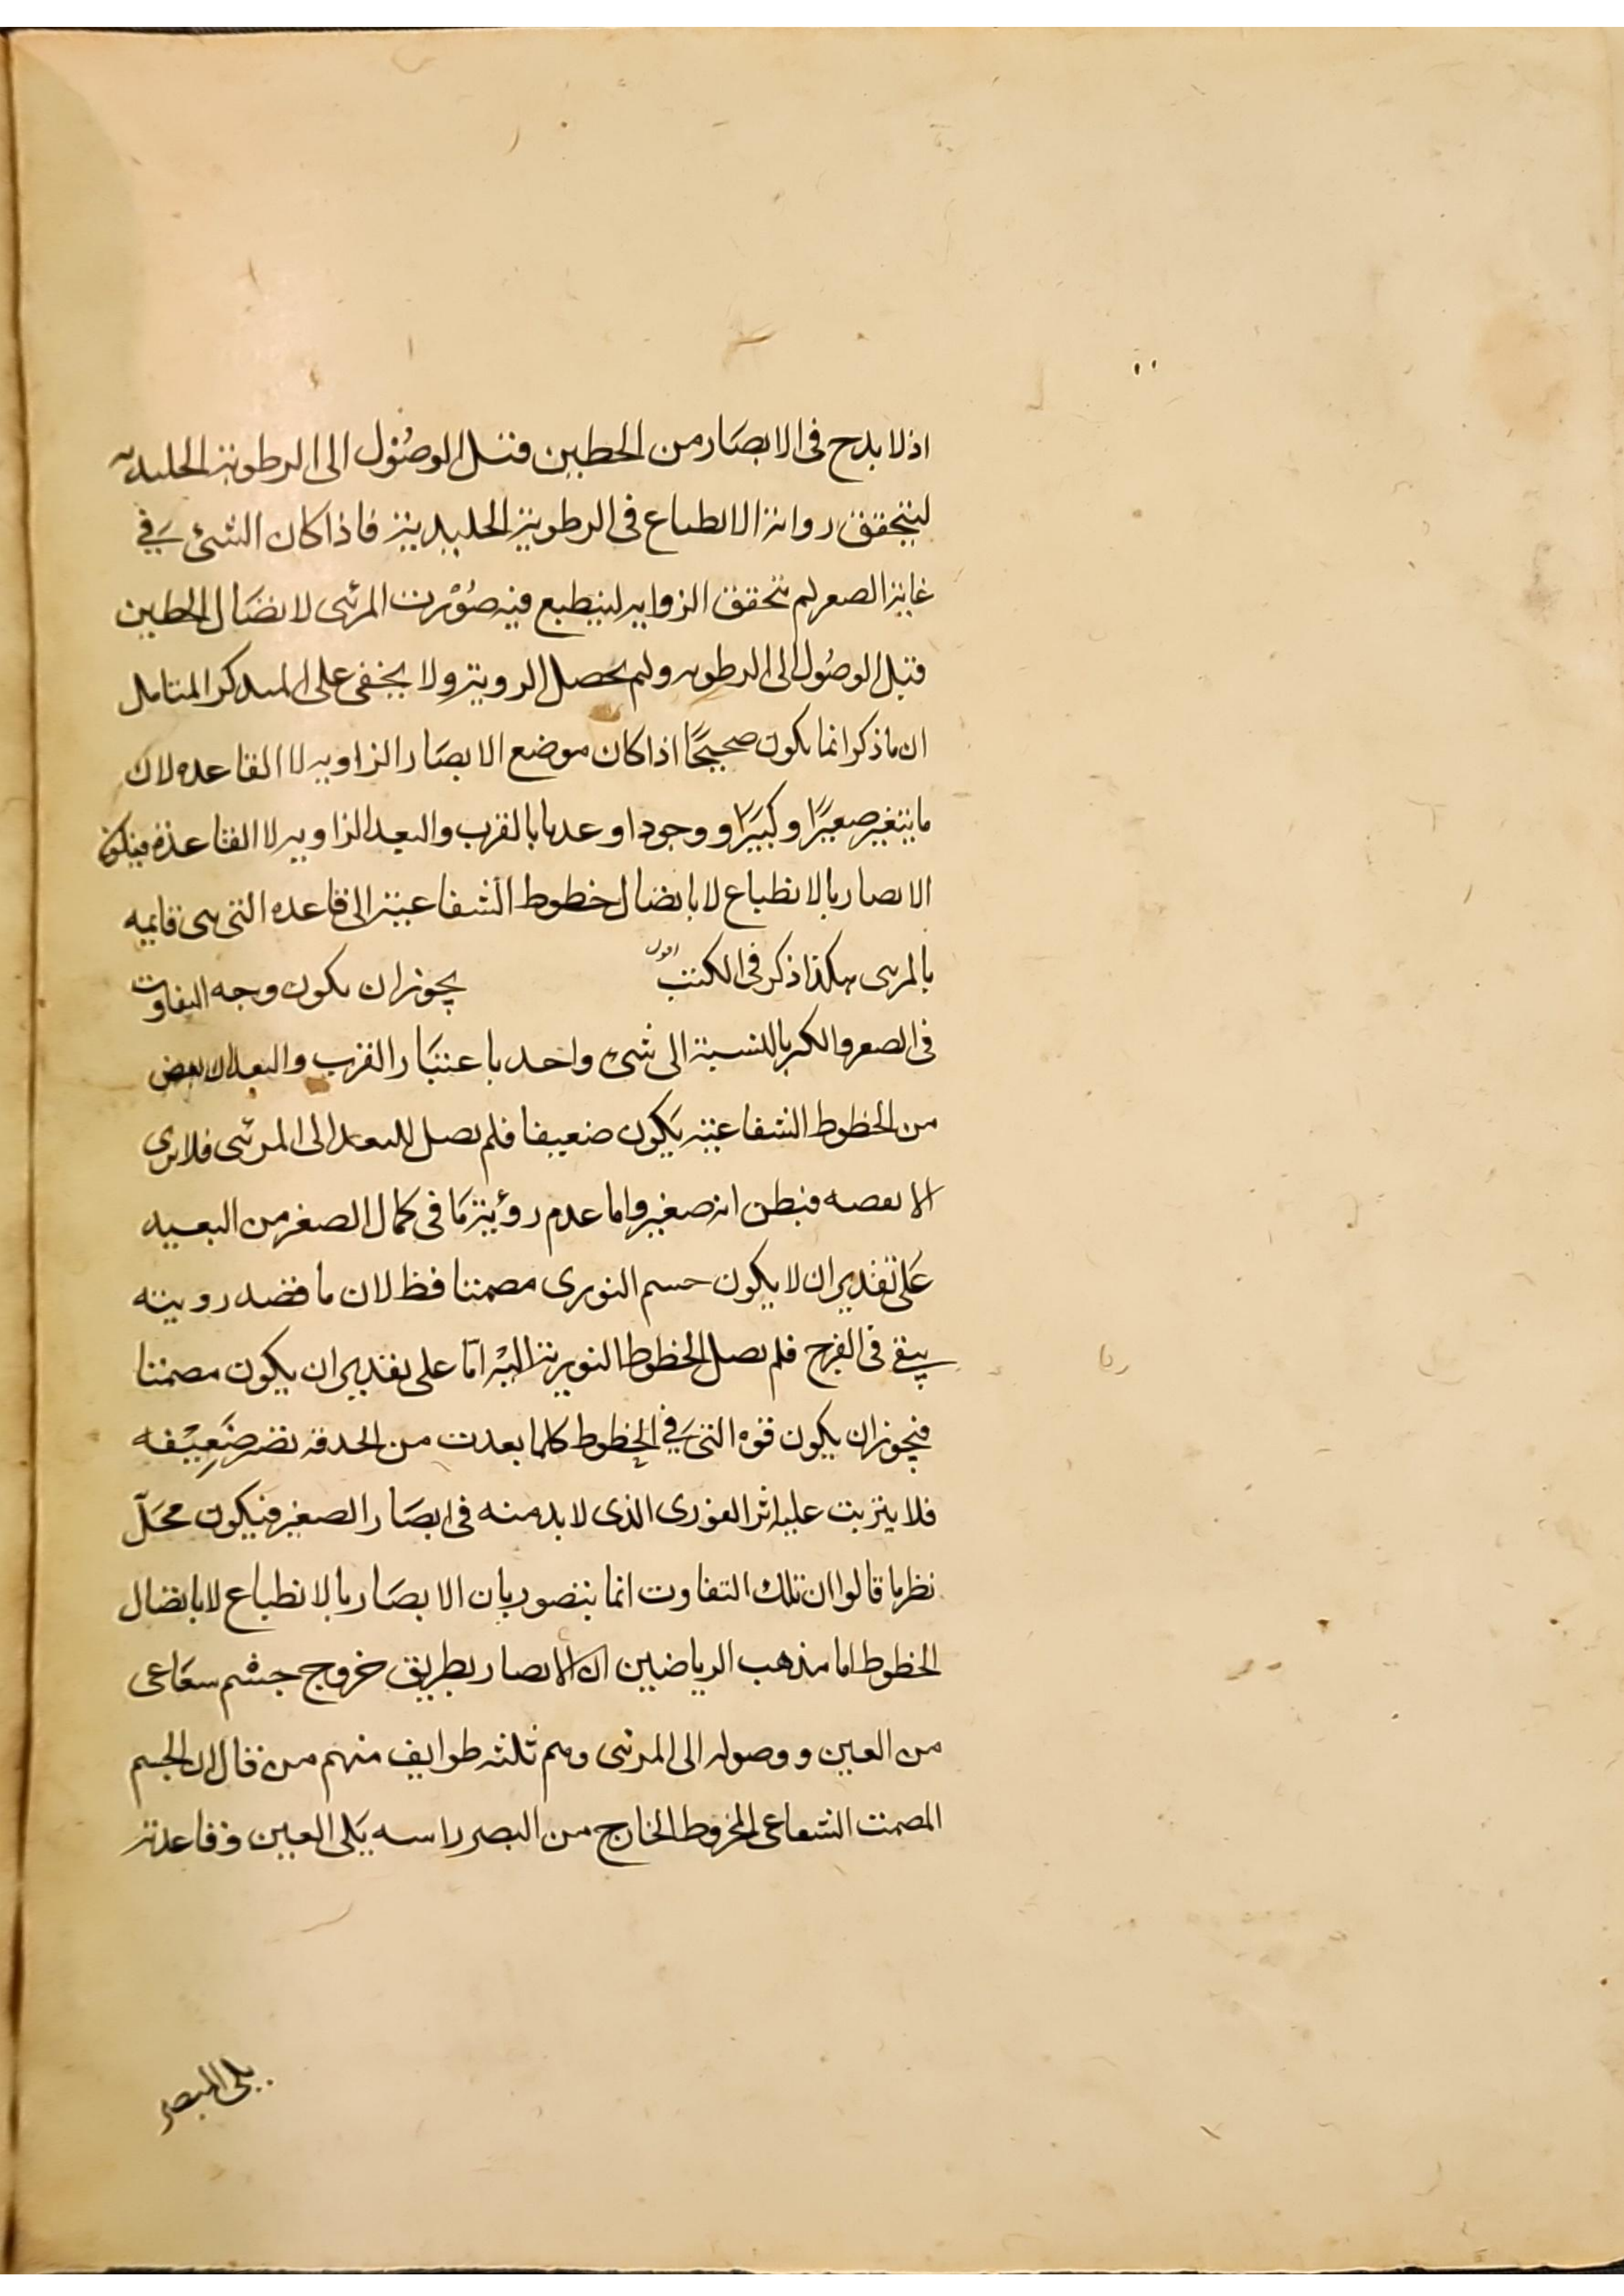 اذ لا بدح فى الابصار من الخطين قبل الوصول الى الرطوبة الجليديه
ليتحقق زواية الانطباع فى الرطوبة الجليدية فاذا كان الشئ فى
غاية الصغر لم تحقق الزوايه لينطبع فيه صورت المرئى لاتصال الخطين
قبل الوصول الى الرطوبه ولم يحصل الروية ولا يخفى على المتذكر المتامل
ان ما ذكر انما يكون صحيحًا اذا كان موضع الابصار الزاويه لا القاعده لان
ما يتغير صغيرًا وكبيرًا ووجودا وعدما بالقرب والبعد الزاويه لا القاعدة فيكون
الابصار بالانطباع لا باتصال خطوط الشعاعية الى قاعده التى هى قايمه
بالمرئى هكذا ذكر فى الكتب اقول يجوز ان يكون وجه التفاوت
فى الصغر والكبر بالنسبة الى شئ واحد باعتبار القرب والبعد ان بعض
من الخطوط الشعاعية يكون ضعيفا فلم يصل للبعد الى المرئى فلا يرى
الا بعضه فيظن انه صغير واما عدم رؤية ما فى كمال الصغر من البعيد
على تقدير ان لا يكون جسم النورى مصمتا فظ لان ما قصد رويته
يبقى فى الفرج فلم يصل الخطوط النورية اليه امّا على تقدير ان يكون مصمتا
فيجوز ان يكون قوه التى فى الخطوط كلما بعدت من الحدقة تصر ضعيفه
فلا يترتب عليه اثر الفورى الذى لا بد منه فى ابصار الصغير فيكون محلّ
نظر ما قالوا ان تلك التفاوت انما يتصور بان الابصار بالانطباع لا باتصال
الخطوط اما مذهب الرياضيين ان الابصار بطريق خروج جسم شعاعى
من العين ووصوله الى المرئى وهم ثلثه طوايف منهم من قال ان الجسم
المصمت الشعاعى المخروط الخارج من البصر راسه يلى العين وقاعدته
يلى المبصر